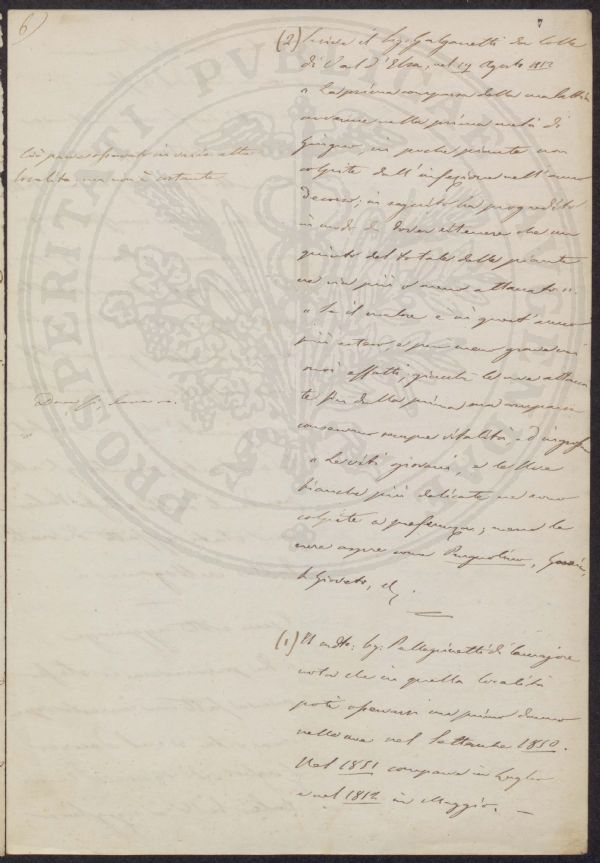 6)
7
(2) Scrive il Sig. Galganetti da Colle
di Val d'Elsa, nel 17 Agosto 1852
" La prima comparsa della malattia
avvenne nella prima metà di
Giugno, in poche piante non
colpite dall'infezione nell'anno
decorso; in seguito ha progredito
in modo da dover ritenere che un
quinto del totale delle piante
ne sia più o meno attaccato ".
" Se il malore è in quest'anno
più esteso è per meno grave nei
suoi effetti, giacchè le uve attacca
te fin dalla prima sua comparsa
conservano sempre vitalità
" Le viti giovani, e le Uve
bianche più delicate ne sono
colpite a preferenza; meno le
nere aspre come
(1) Il
nota che in quella località
potè osservarsi un primo
nelle uve nel Settembre 1850.
Nel 1851 comparve in Luglio
e nel 1852 in Maggio. —
Ciò pure osservato in varie altre
località, ma non è costante
PROSPERITATI PUBLICAE AUGENDAE